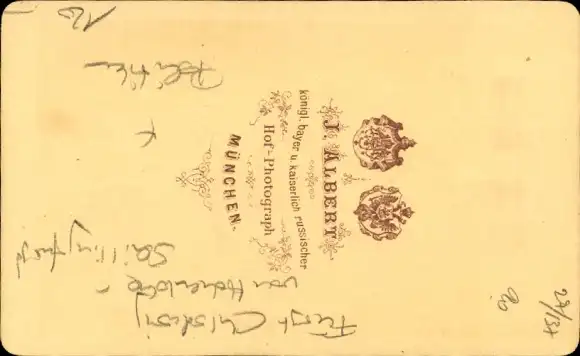 J. ALBERT
königl. bayer u. kaiserlich russischer
Hof-Photograph
MÜNCHEN.
Fürst Chlodwig
von Hohenlohe
Schillingsfürst